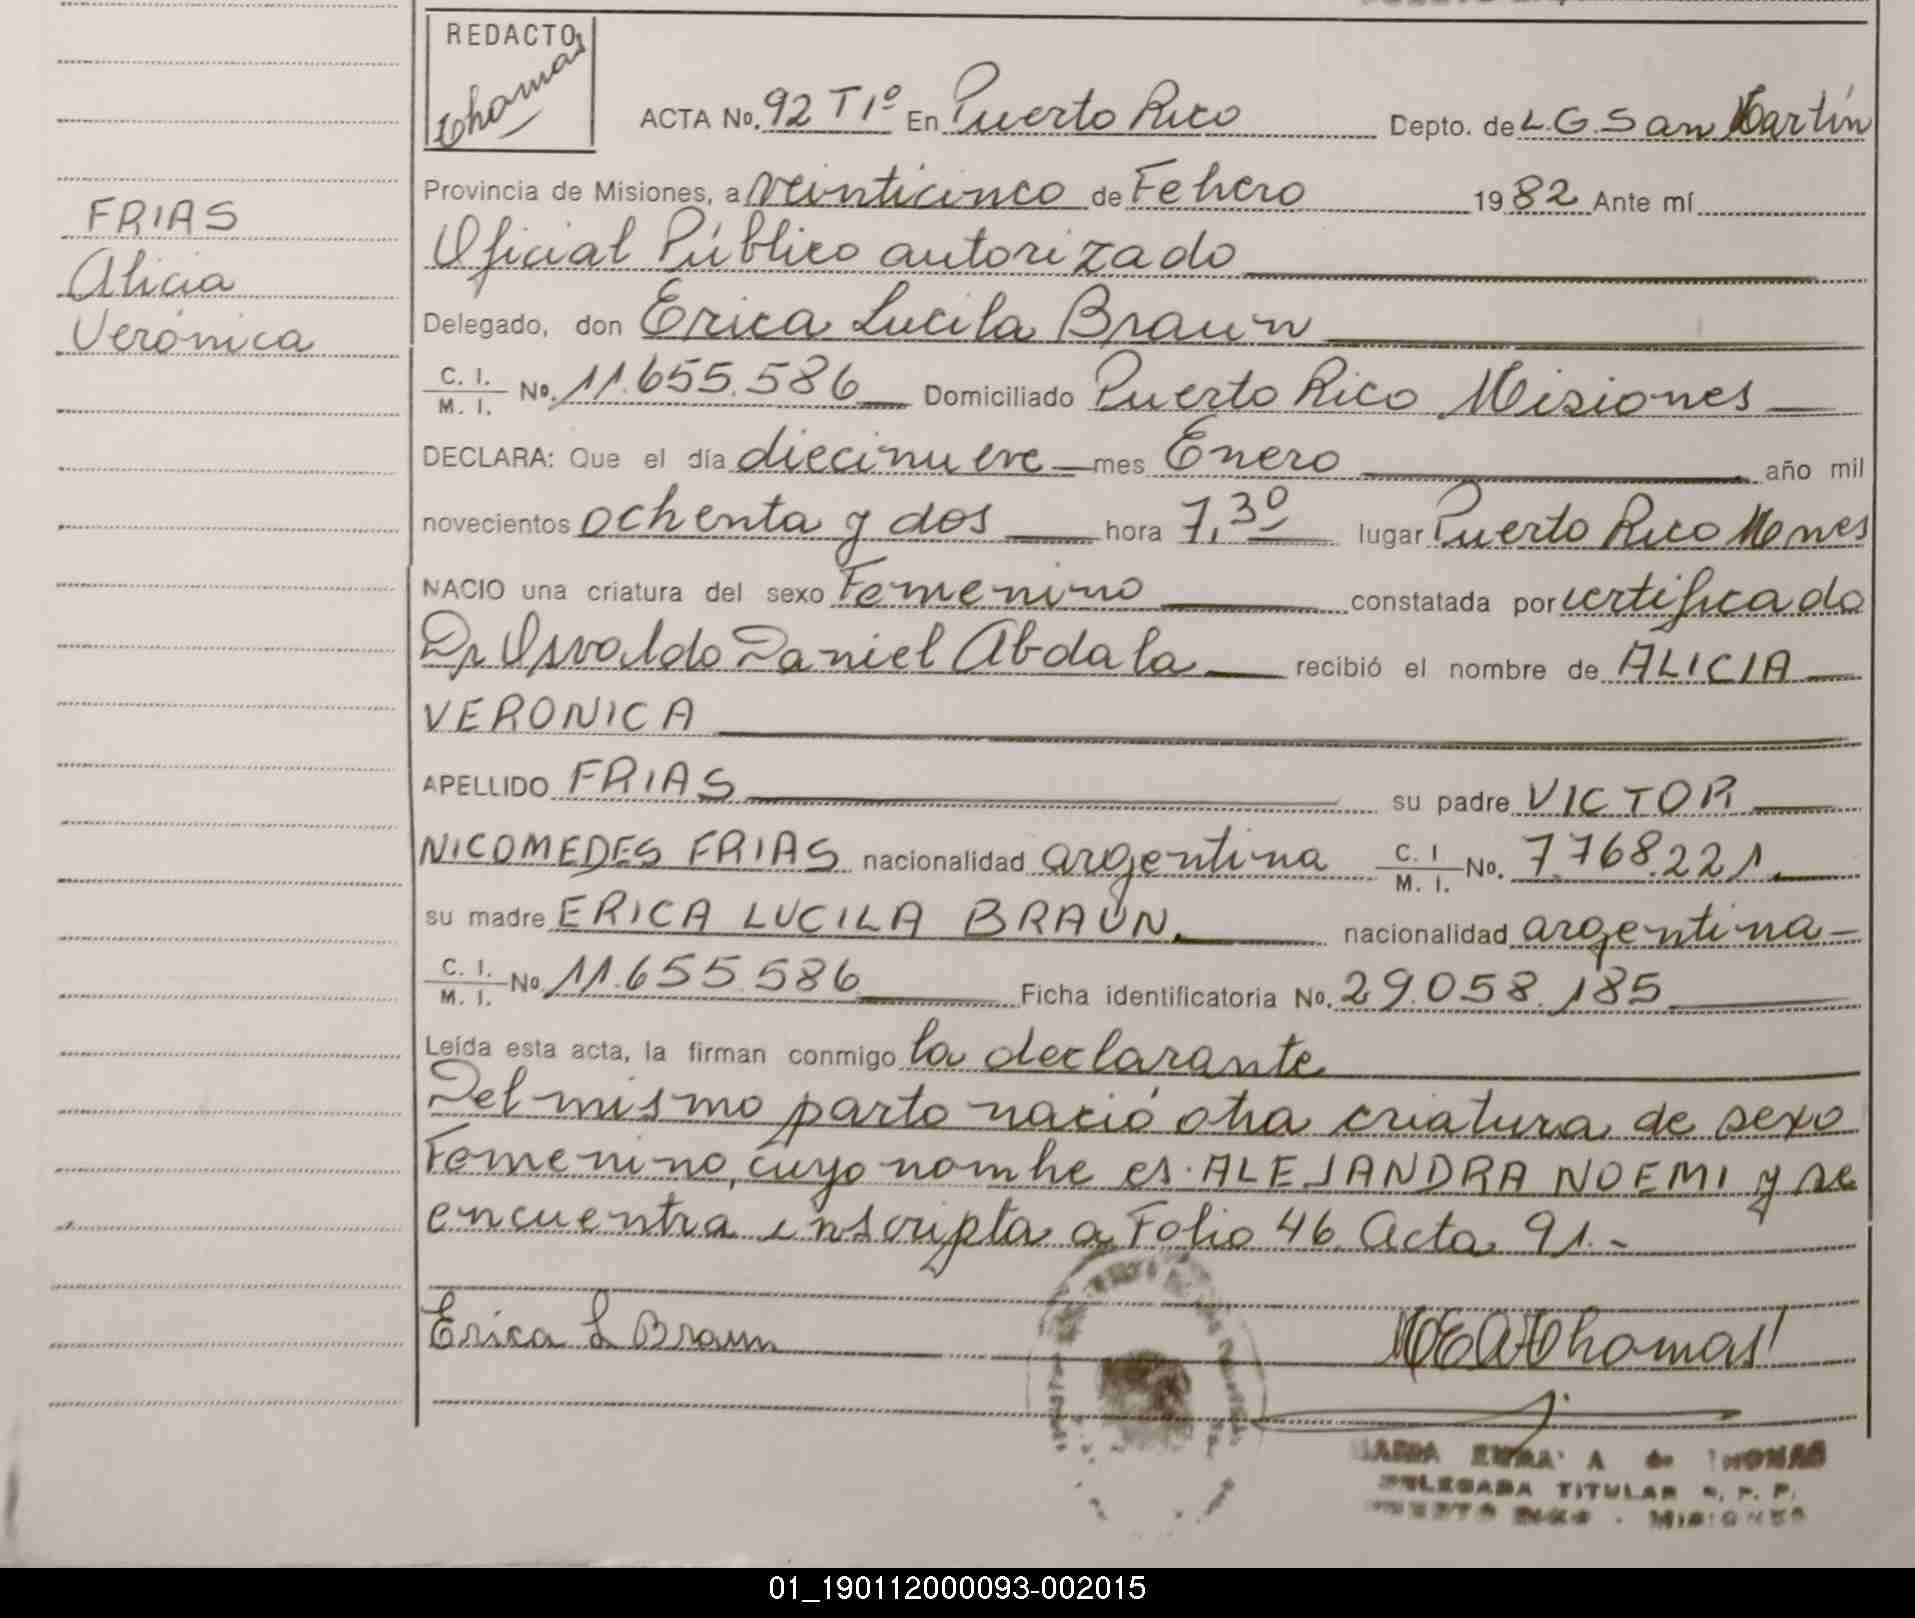 REDACTO
Thomas
ACTA No. 92 T1º En Puerto Rico Depto. de L.G. San Martín
Provincia de Misiones, a veinticinco de Febrero 1982 Ante mí
FRIAS
Oficial Público autorizado
Alicia
Delegado, don Erica Lucila Braun
Verónica
C. I. / M. I. No. 11.655.586 Domiciliado Puerto Rico Misiones
DECLARA: Que el día diecinueve mes Enero año mil
novecientos ochenta y dos hora 7,30 lugar Puerto Rico Mnes
NACIO una criatura del sexo Femenino constatada por certificado
Dr Osvaldo Daniel Abdala recibió el nombre de ALICIA
VERONICA
APELLIDO FRIAS su padre VICTOR
NICOMEDES FRIAS nacionalidad argentina C. I / M. I. No. 7.768.221
su madre ERICA LUCILA BRAUN. nacionalidad argentina
C. I. / M. I. No. 11.655.586 Ficha identificatoria No. 29.058.185
Leída esta acta, la firman conmigo la declarante
Del mismo parto nació otra criatura de sexo
Femenino, cuyo nombre es ALEJANDRA NOEMI y se
encuentra inscripta a Folio 46 Acta 91.-
Erica L Braun
Thomas
MARIA A de THOMAS
DELEGADA TITULAR R. P. P.
PUERTO RICO - MISIONES
01_190112000093-002015